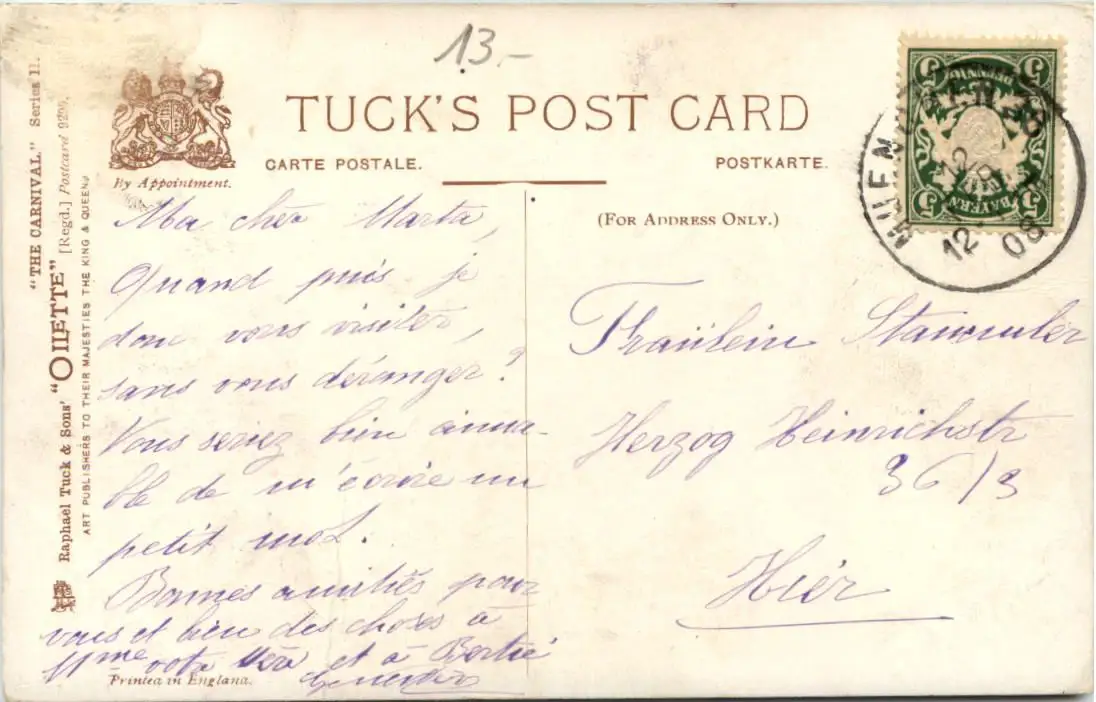 13.-
TUCK'S POST CARD
CARTE POSTALE.
POSTKARTE.
By Appointment.
(FOR ADDRESS ONLY.)
"THE CARNIVAL." Series II.
Raphael Tuck & Sons' "OILETTE" [Regd.] Postcard
ART PUBLISHERS TO THEIR MAJESTIES THE KING & QUEEN.
Ma chèr Marta,
Quand puis je
donc vous visiter,
sans vous déranger?
Vous seriez bien aima-
ble de m'écrire un
petit mot.
Bonnes amitiés pour
vous et bien des choses à
Mme votre Mère et à Bertie
Printed in England.
Fraülein Stammler
Herzog Heinrichstr
36/3
Hier
5 PFENNIG 5
5 BAYERN 5
MUENCHEN
12-
08